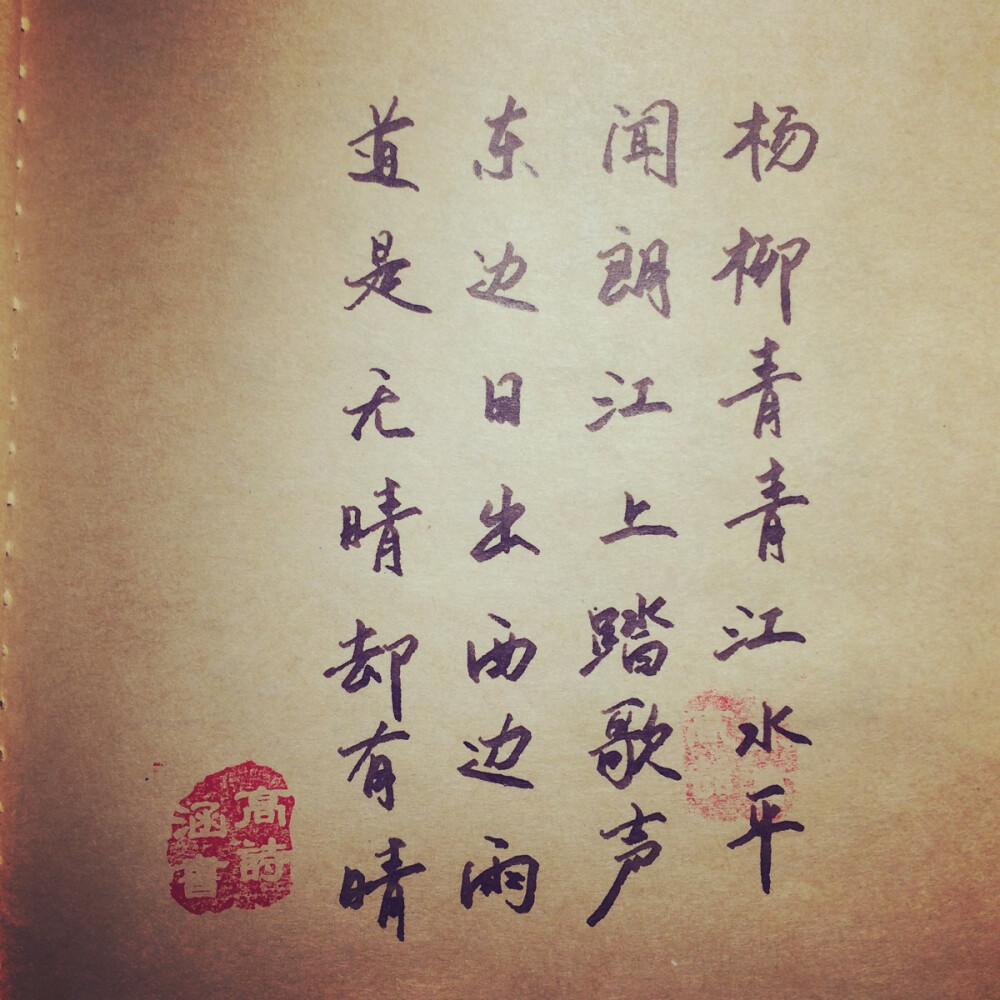 杨柳青青江水平
闻朗江上踏歌声
东边日出西边雨
道是无晴却有晴
高诗
涵香